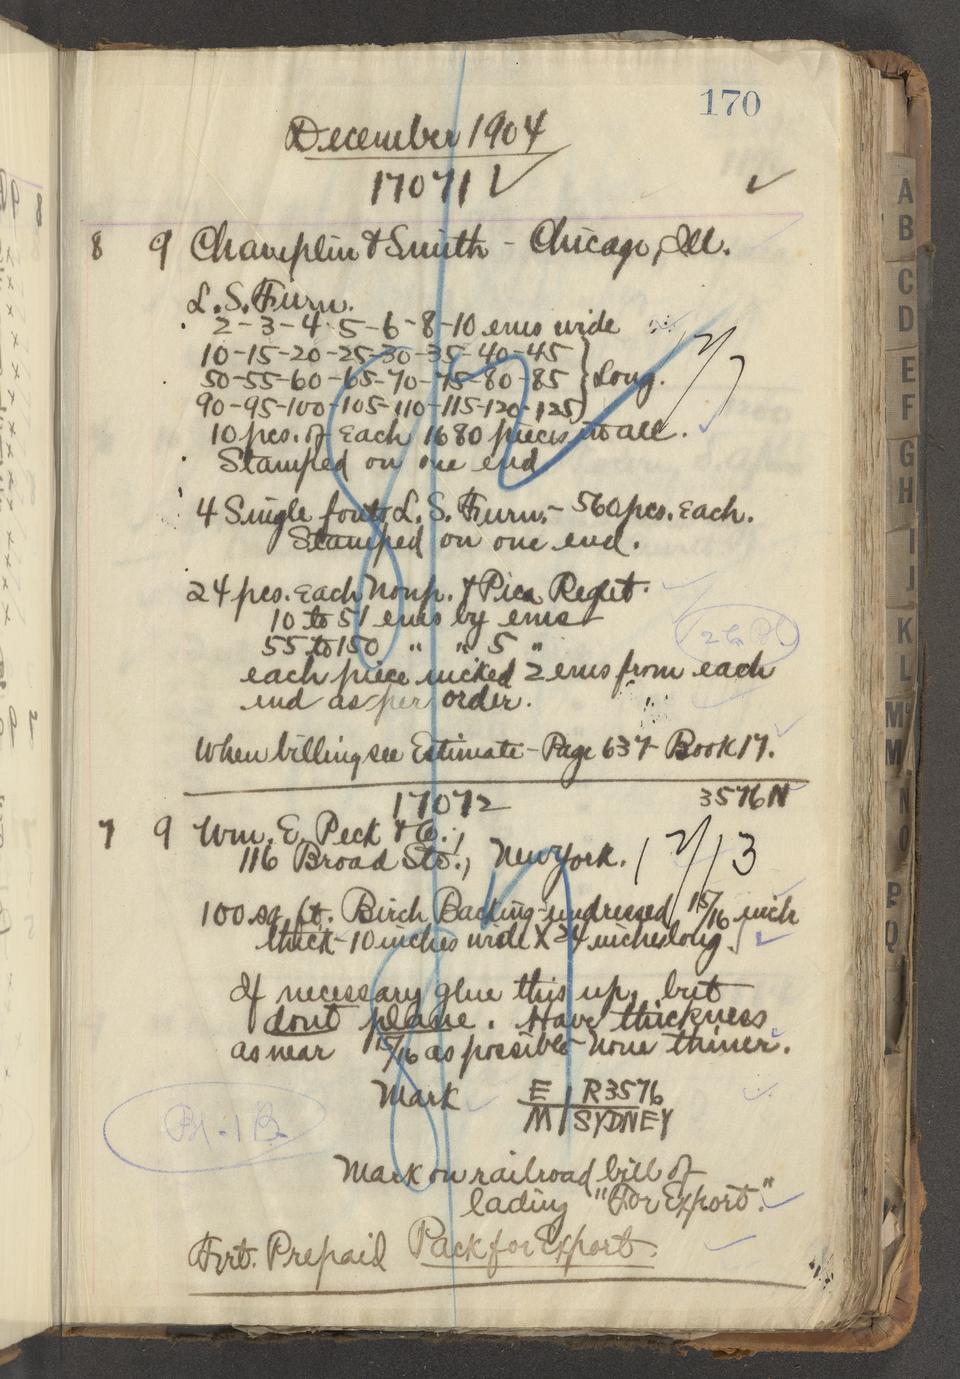 170
December 1904
17071
8 9 Champlin & Smith - Chicago, Ill.
L. S. Furn.
2-3-4-5-6-8-10 ems wide
10-15-20-25-30-35-40-45
50-55-60-65-70-75-80-85 } Long.
90-95-100-105-110-115-120-125
10 pcs. of Each 1680 pieces in all.
Stamped on one end
12/7
4 Single fonts L. S. Furn. - 560 pcs. Each.
Stamped on one end.
24 pcs. Each Nonp. & Pica Reglet.
10 to 51 ems by ems
55 to 150 " " 5 "
each piece nicked 2 ems from each
end as per order.
When billing see Estimate - Page 637 - Book 17.
17072 3576N
7 9 Wm. E. Peck & Co.,
116 Broad St., New York.
12/13
100 sq. ft. Birch Backing - undressed 15/16 inch
thick - 10 inches wide X 24 inches long.
If necessary glue this up, but
dont plane. Have thickness
as near 15/16 as possible - none thiner.
Mark E R3576
M SYDNEY
Mark on railroad bill of
lading "For Export."
Frt. Prepaid Pack for Export.
A
B
C
D
E
F
G
H
I
J
K
L
Mc
M
N
O
P
Q